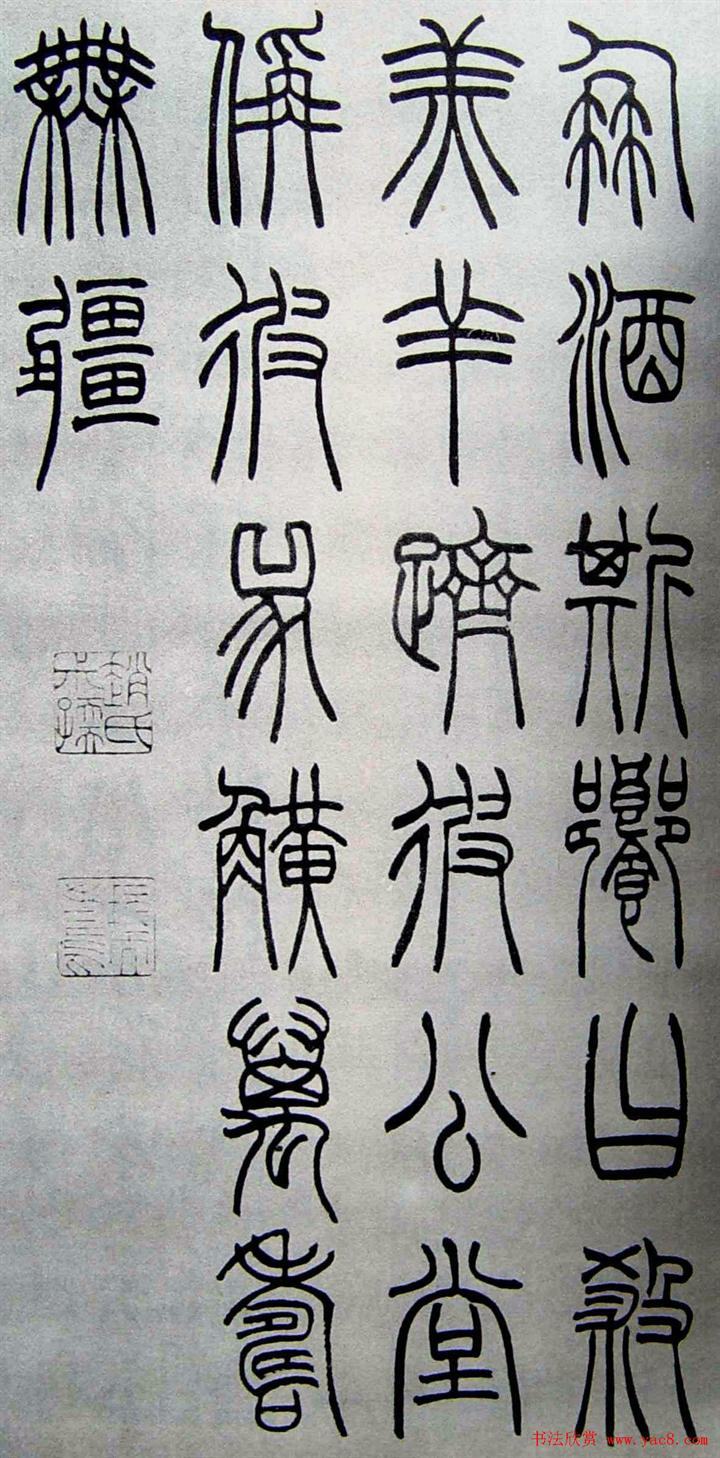 朋酒斯饗曰殺
羔羊躋彼公堂
偁彼兕觵萬壽
無疆
书法欣赏 www.yac8.com